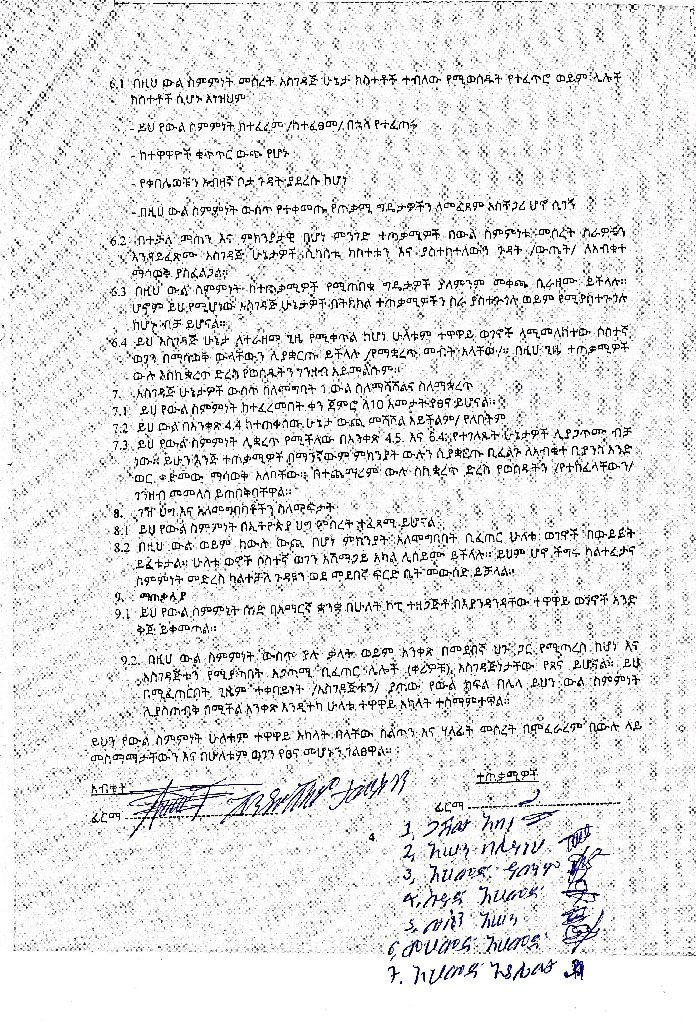 6.1 በዚህ ውል ስምምነት መሰረት አስገዳጅ ሁኔታ ክስተቶች ተብለው የሚወሰዱት የተፈጥሮ ወይም ሌሎች
ክስተቶች ሲሆኑ እነዝህም
- ይህ የውል ስምምነት ከተፈረመ /ከተፈፀመ/ በኋላ የተፈጠሩ
- ከተዋዋዮች ቁጥጥር ውጭ የሆኑ
- የቀበሌዎቹን አብዛኛ ቦታ ጉዳት ያደረሱ ከሆነ
- በዚህ ውል ስምምነት ውስጥ የተቀመጡ የጠቃሚ ግዴታዎችን ለመፈጸም አስቸጋሪ ሆኖ ሲገኝ
6.2 በተቻለ መጠን እና ምክንያታዊ በሆነ መንገድ ተጠቃሚዎች በውል ስምምነቱ መሰረት ስራዎቹን
እንዳይፈጽሙ አስገዳጅ ሁኔታዎች ሲከሰቱ ክስተቱን እና ያስተከተለውን ጉዳት /ውጤት/ ለአብቁተ
ማሳወቅ ያስፈልጋል፡፡
6.3 በዚህ ውል ስምምነት ከተጠቃሚዎች የሚጠበቁ ግዴታዎች ያለምንም መቀጫ ሊራዘሙ ይችላሉ፡፡
ሆኖም ይህ የሚሆነው አስገዳጅ ሁኔታዎች በትክክል ተጠቃሚዎችን ስራ ያስተጓጎሉ ወይም የሚያስተጓጉሉ
ከሆኑ ብቻ ይሆናል፡፡
6.4 ይህ አስገዳጅ ሁኔታ ለተራዘመ ጊዜ የሚቀጥል ከሆነ ሁለቱም ተዋዋይ ወገኖች ለሚመለከተው ሶስተኛ
ወገን በማሳወቅ ውላቸውን ሊያቋርጡ ይችላሉ /የማቋረጥ መብት አላቸው/፡፡ በዚህ ጊዜ ተጠቃሚዎች
ውሉ እስኪቋረጥ ድረስ የወሰዱትን ገንዘብ አይመልሱም፡፡
7. አስገዳጅ ሁኔታዎች ውስጥ ስለመግባት 1 ውል ስለማሻሻልና ስለማቋረጥ
7.1 ይህ የውል ስምምነት ከተፈረመበት ቀን ጀምሮ ለ10 አመታት የፀና ይሆናል፡፡
7.2 ይህ ውል በአንቀጽ 4.4 ከተጠቀሰው ሁኔታ ውጪ መሻሻል አይችልም/ የለበትም
7.3 ይህ የውል ስምምነት ሊቋረጥ የሚችለው በአንቀጽ 4.5. እና 6.4፡ የተገለጹት ሁኔታዎች ሲያጋጥሙ ብቻ
ነው፡፡ ይሁን እንጅ ተጠቃሚዎች በማንኛውም ምክንያት ውሉን ሲያቋርጡ ቢፈልጉ ለአብቁተ ቢያንስ አንድ
ወር ቀድመው ማሳወቅ አለባቸው፡፡ በተጨማሪም ውሉ ስኪቋረጥ ድረስ የወሰዱትን /የተከፈላቸውን/
ገንዘብ መመለስ ይጠበቅባቸዋል፡፡
8. ገዥ ህግ እና አለመግባባቶችን ስለሚፍታት
8.1 ይህ የውል ስምምነት በኢትዮጵያ ህግ መሰረት ተፈጸሚ ይሆናል
8.2 በዚህ ውል ወይም ከውሉ ውጪ በሆነ ምክንያት አለመግባባት ቢፈጠር ሁለቱ ወገኖች በውይይት
ይፈታሉ፡፡ ሁለቱ ወኖች ሶስተኛ ወገን አሸማጋይ አካል ሊሰይሙ ይችላሉ፡፡ ይህም ሆኖ ችግሩ ካልተፈታና
ስምምነት መድረስ ካልተቻለ ጉዳዩን ወደ መደበኛ ፍርድ ቤት መውሰድ ይቻላል፡፡
9. ማጠቃለያ
9.1 ይህ የውል ስምምነት ሰነድ በአማርኛ ቋንቋ በሁለት ኮፒ ተዘጋጅቶ በእያንዳንዳቸው ተዋዋይ ወገኖች አንድ
ቅጅ ይቀመጣል፡፡
9.2. በዚህ ውል ስምምነት ውስጥ ያሉ ቃላት ወይም አንቀጽ በመደበኛ ህጉ ጋር የሚጣረስ ከሆነ እና
አስገዳጅቱን የሚያሳጣ አጋጣሚ ቢፈጠር ሌሎች (ቀሪዎቹ) አስገዳጅነታቸው የጸና ይሆናል፡፡ ይህ
በሚፈጠርበት ጊዜም ተቀባይነት /አስገዳጅቱን/ ያጣው የውል ክፍል በሌላ ይህን ውል ስምምነት
ሊያስጠብቅ በሚችል አንቀጽ እንዲተካ ሁለቱ ተዋዋይ አካላት ተስማምተዋል፡፡
ይህን የውል ስምምነት ሁለቱም ተዋዋይ አካላት ባላቸው ስልጣን እና ሃላፊት መሰረት በመፈራረም በውሉ ላይ
መስማማታቸውን እና በሁለቱም ወገን የፀና መሆኑን ገልፀዋል፡፡
አብቁተ
ተጠቃሚዎች
ፊርማ
ፊርማ
4
1,
2,
3, አህመድ
4, አህመድ
5,
6, መሀመድ አህመድ
7. አህመድ